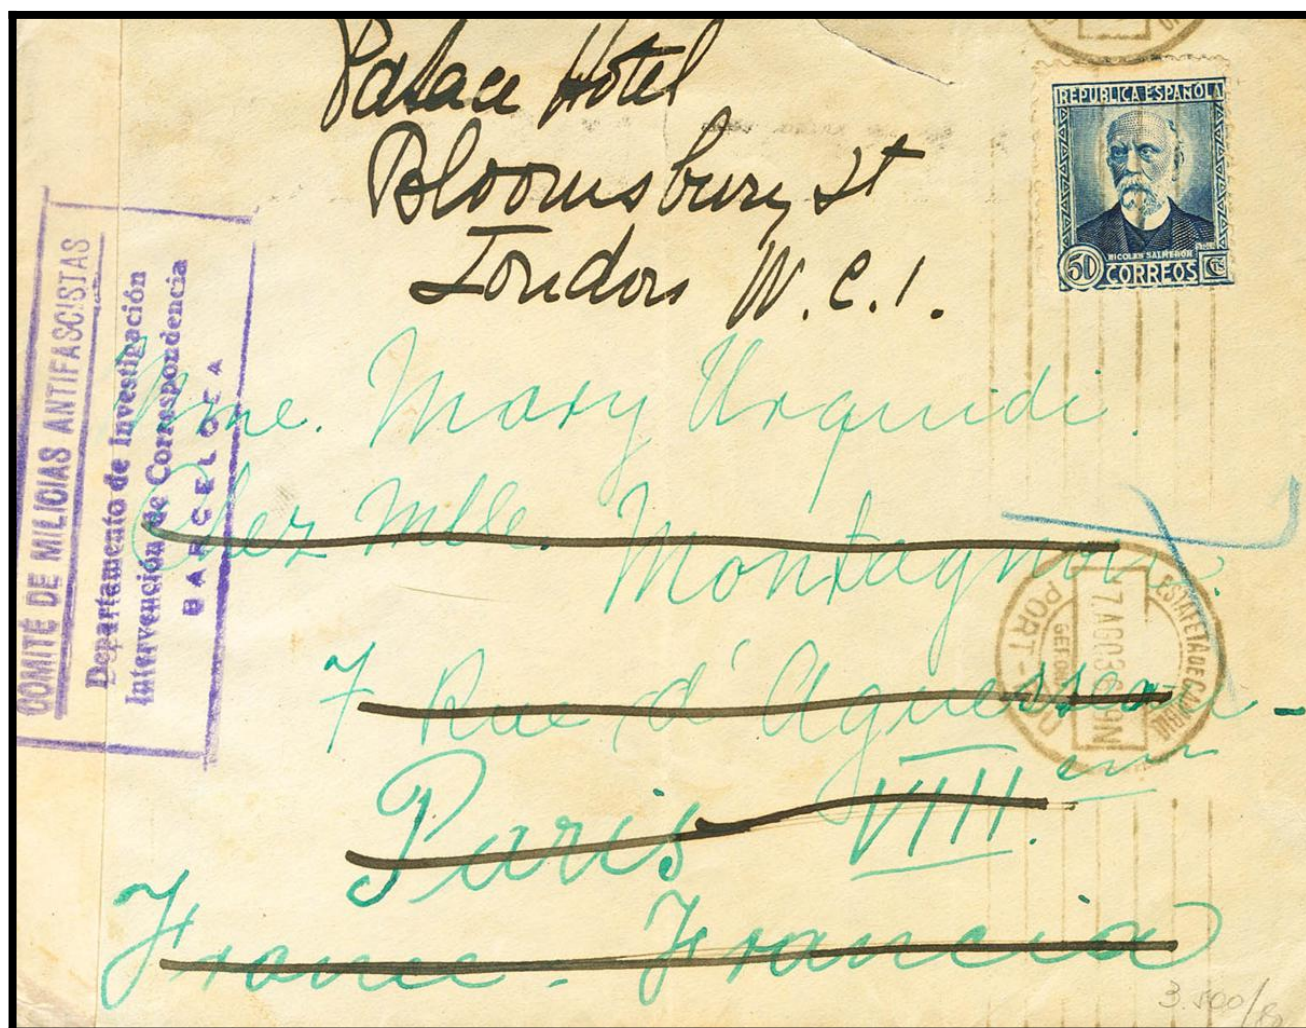 Palace Hotel
Bloomsbury St
London W.C.1.
REPUBLICA ESPAÑOLA
NICOLAS SALMERON
50 CORREOS CTS
COMITÉ DE MILICIAS ANTIFASCISTAS
Departamento de Investigación
Intervención de Correspondencia
BARCELONA
Mme. Mary Urquidi.
Chez Mlle. Montagnon.
7 Rue d'Aguesseau-
Paris VIIIeme.
France - Francia
ESTAFETA DE CAMBIO
7.AGO36
PORT-BOU
3.500/